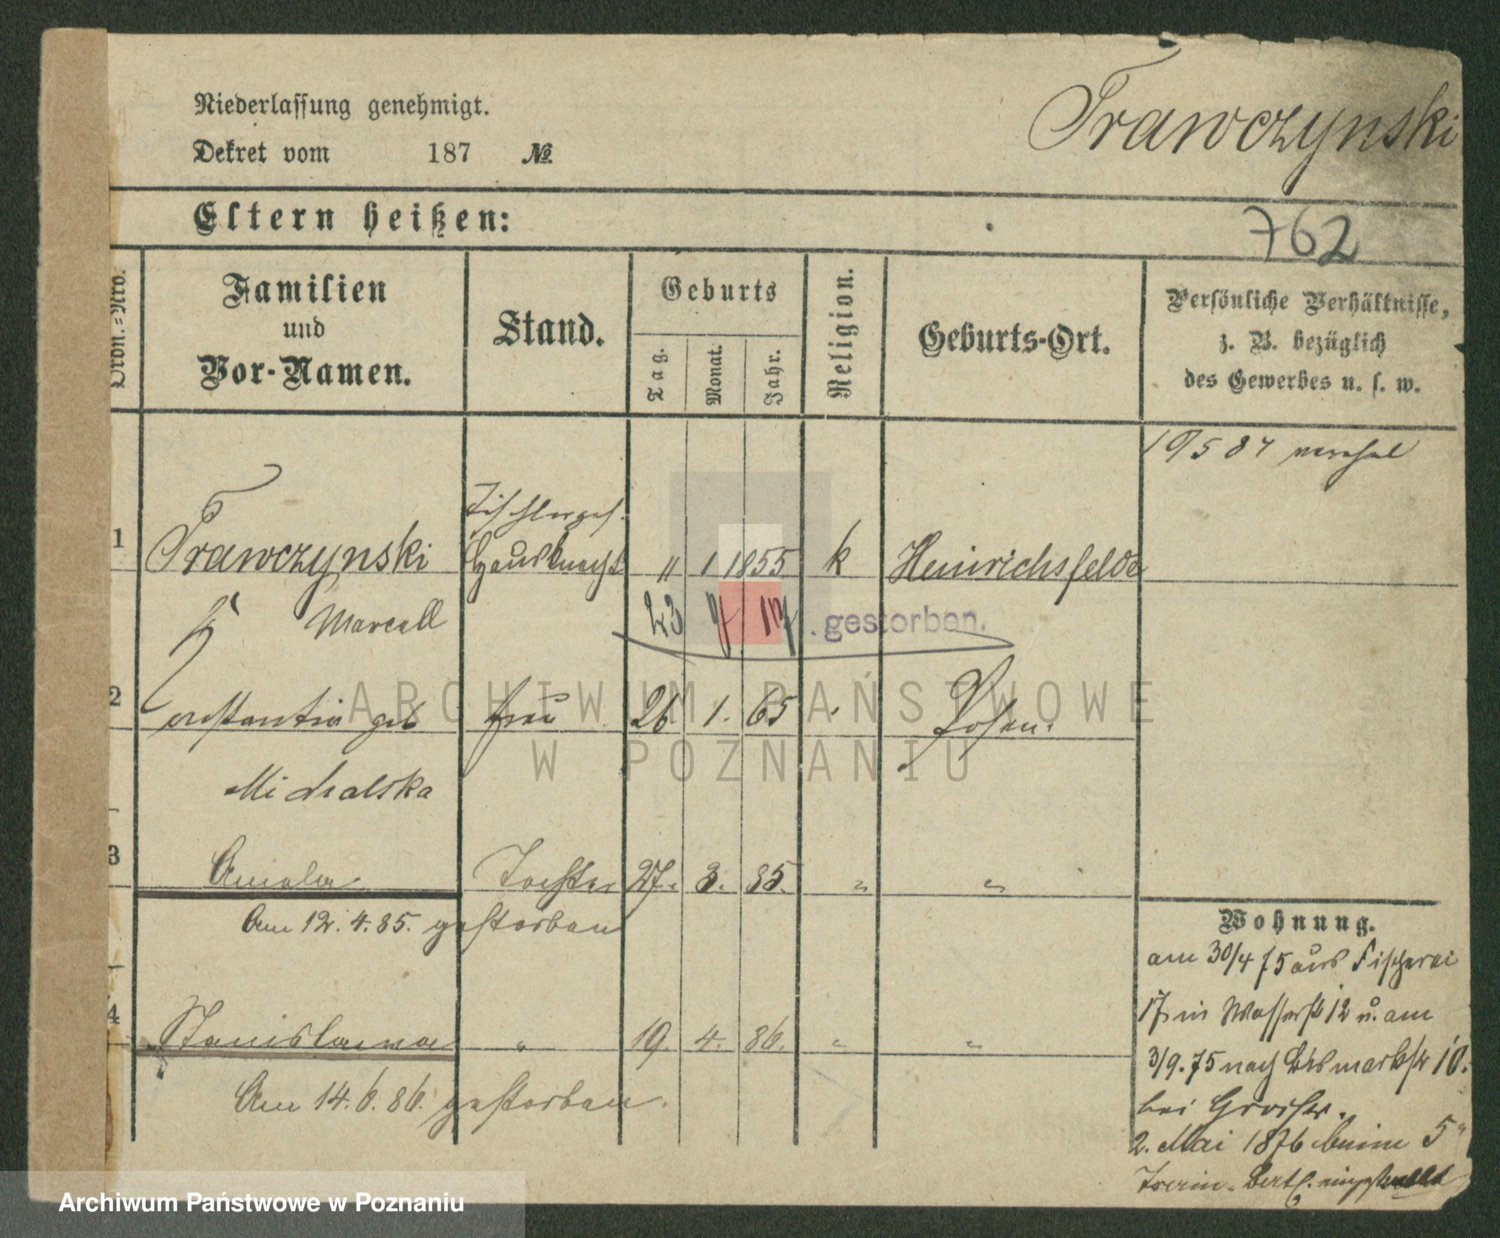 Niederlassung genehmigt.
Trawczynski
Dekret vom 187 №
Eltern heißen:
762
Ordn.=Nro.
Familien
und
Vor-Namen.
Stand.
Geburts
Tag.
Monat.
Jahr.
Religion.
Geburts-Ort.
Persönliche Verhältnisse,
z. B. bezüglich
des Gewerbes u. s. w.
Tischlerges.
1 Trawczynski Hausknecht " 1 1855 k Heinrichsfelde
Marcell
23 gestorben.
2 geb Frau 26 1. 65 Posen.
Michalska
3 Tochter 27. 3. 85. " "
Am 12. 4. 85. gestorben
4 Stanislawa " 19. 4. 86. " "
Am 14. 6. 86. gestorben.
Wohnung.
am 30/4 75 aus Fischerei
17 in Wasserst 12 u. am
3/9. 75 nach Bismarckstr 10.
bei
2. Mai 1876 beim 5"
ARCHIWUM PAŃSTWOWE
W POZNANIU
Archiwum Państwowe w Poznaniu